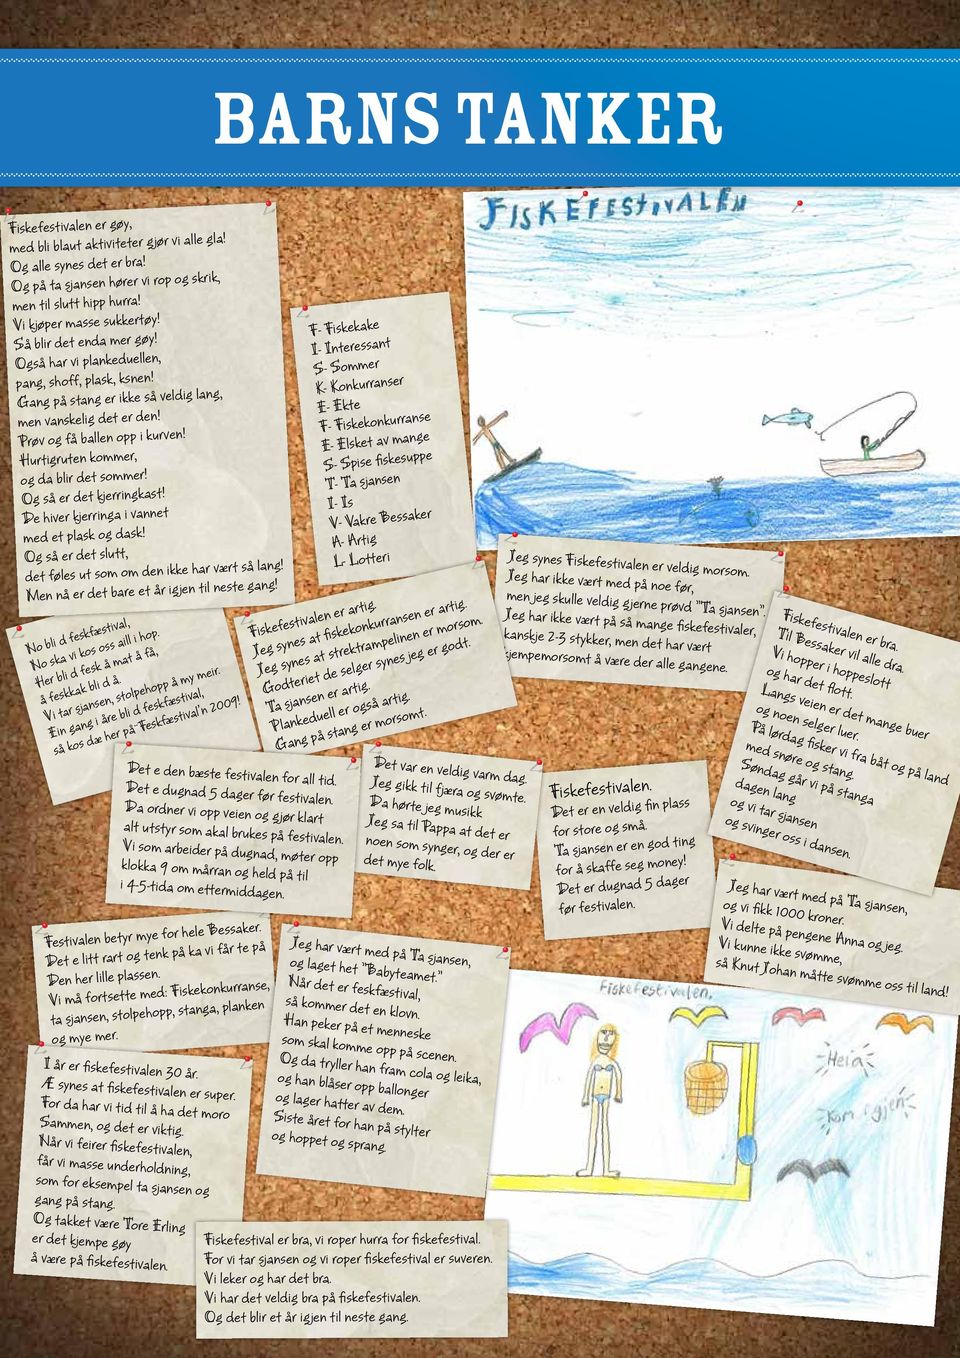 BARNS TANKER
Fiskefestivalen er gøy,
med bli blaut aktiviteter gjør vi alle gla!
Og alle synes det er bra!
Og på ta sjansen hører vi rop og skrik,
men til slutt hipp hurra!
Vi kjøper masse sukkertøy!
Så blir det enda mer gøy!
Også har vi plankeduellen,
pang, shoff, plask, ksnen!
Gang på stang er ikke så veldig lang,
men vanskelig det er den!
Prøv og få ballen opp i kurven!
Hurtigruten kommer,
og da blir det sommer!
Og så er det kjerringkast!
De hiver kjerringa i vannet
med et plask og dask!
Og så er det slutt,
det føles ut som om den ikke har vært så lang!
Men nå er det bare et år igjen til neste gang!
F- Fiskekake
I- Interessant
S- Sommer
K- Konkurranser
E- Ekte
F- Fiskekonkurranse
E- Elsket av mange
S- Spise fiskesuppe
T- Ta sjansen
I- Is
V- Vakre Bessaker
A- Artig
L- Lotteri
FISKEFESTIVALEN
No bli d feskfæstival,
No ska vi kos oss aill i hop.
Her bli d fesk å mat å få,
å feskkak bli d å.
Vi tar sjansen, stolpehopp å my meir.
Ein gang i åre bli d feskfæstival,
så kos dæ her på Feskfæstival'n 2009!
Fiskefestivalen er artig.
Jeg synes at fiskekonkurransen er artig.
Jeg synes at strektrampelinen er morsom.
Godteriet de selger synes jeg er godt.
Ta sjansen er artig.
Plankeduell er også artig.
Gang på stang er morsomt.
Jeg synes Fiskefestivalen er veldig morsom.
Jeg har ikke vært med på noe før,
men jeg skulle veldig gjerne prøvd "Ta sjansen".
Jeg har ikke vært på så mange fiskefestivaler,
kanskje 2-3 stykker, men det har vært
kjempemorsomt å være der alle gangene.
Fiskefestivalen er bra.
Til Bessaker vil alle dra.
Vi hopper i hoppeslott
og har det flott.
Langs veien er det mange buer
og noen selger luer.
På lørdag fisker vi fra båt og på land
med snøre og stang.
Søndag går vi på stanga
dagen lang
og vi tar sjansen
og svinger oss i dansen.
Det e den bæste festivalen for all tid.
Det e dugnad 5 dager før festivalen.
Da ordner vi opp veien og gjør klart
alt utstyr som skal brukes på festivalen.
Vi som arbeider på dugnad, møter opp
klokka 9 om mårran og held på til
i 4-5-tida om ettermiddagen.
Det var en veldig varm dag.
Jeg gikk til fjæra og svømte.
Da hørte jeg musikk
Jeg sa til Pappa at det er
noen som synger, og der er
det mye folk.
Fiskefestivalen.
Det er en veldig fin plass
for store og små.
Ta sjansen er en god ting
for å skaffe seg money!
Det er dugnad 5 dager
før festivalen.
Jeg har vært med på Ta sjansen,
og vi fikk 1000 kroner.
Vi delte på pengene Anna og jeg.
Vi kunne ikke svømme,
så Knut Johan måtte svømme oss til land!
Festivalen betyr mye for hele Bessaker.
Det e litt rart og tenk på ka vi får te på
Den her lille plassen.
Vi må fortsette med: Fiskekonkurranse,
ta sjansen, stolpehopp, stanga, planken
og mye mer.
Jeg har vært med på Ta sjansen,
og laget het "Babyteamet."
Når det er feskfæstival,
så kommer det en klovn.
Han peker på et menneske
som skal komme opp på scenen.
Og da tryller han fram cola og leika,
og han blåser opp ballonger
og lager hatter av dem.
Siste året for han på stylter
og hoppet og sprang.
I år er fiskefestivalen 30 år.
Æ synes at fiskefestivalen er super.
For da har vi tid til å ha det moro
Sammen, og det er viktig.
Når vi feirer fiskefestivalen,
får vi masse underholdning,
som for eksempel ta sjansen og
gang på stang.
Og takket være Tore Erling
er det kjempe gøy
å være på fiskefestivalen.
Fiskefestival er bra, vi roper hurra for fiskefestival.
For vi tar sjansen og vi roper fiskefestival er suveren.
Vi leker og har det bra.
Vi har det veldig bra på fiskefestivalen.
Og det blir et år igjen til neste gang.
Fiskefestivalen.
Heia
Kom igjen